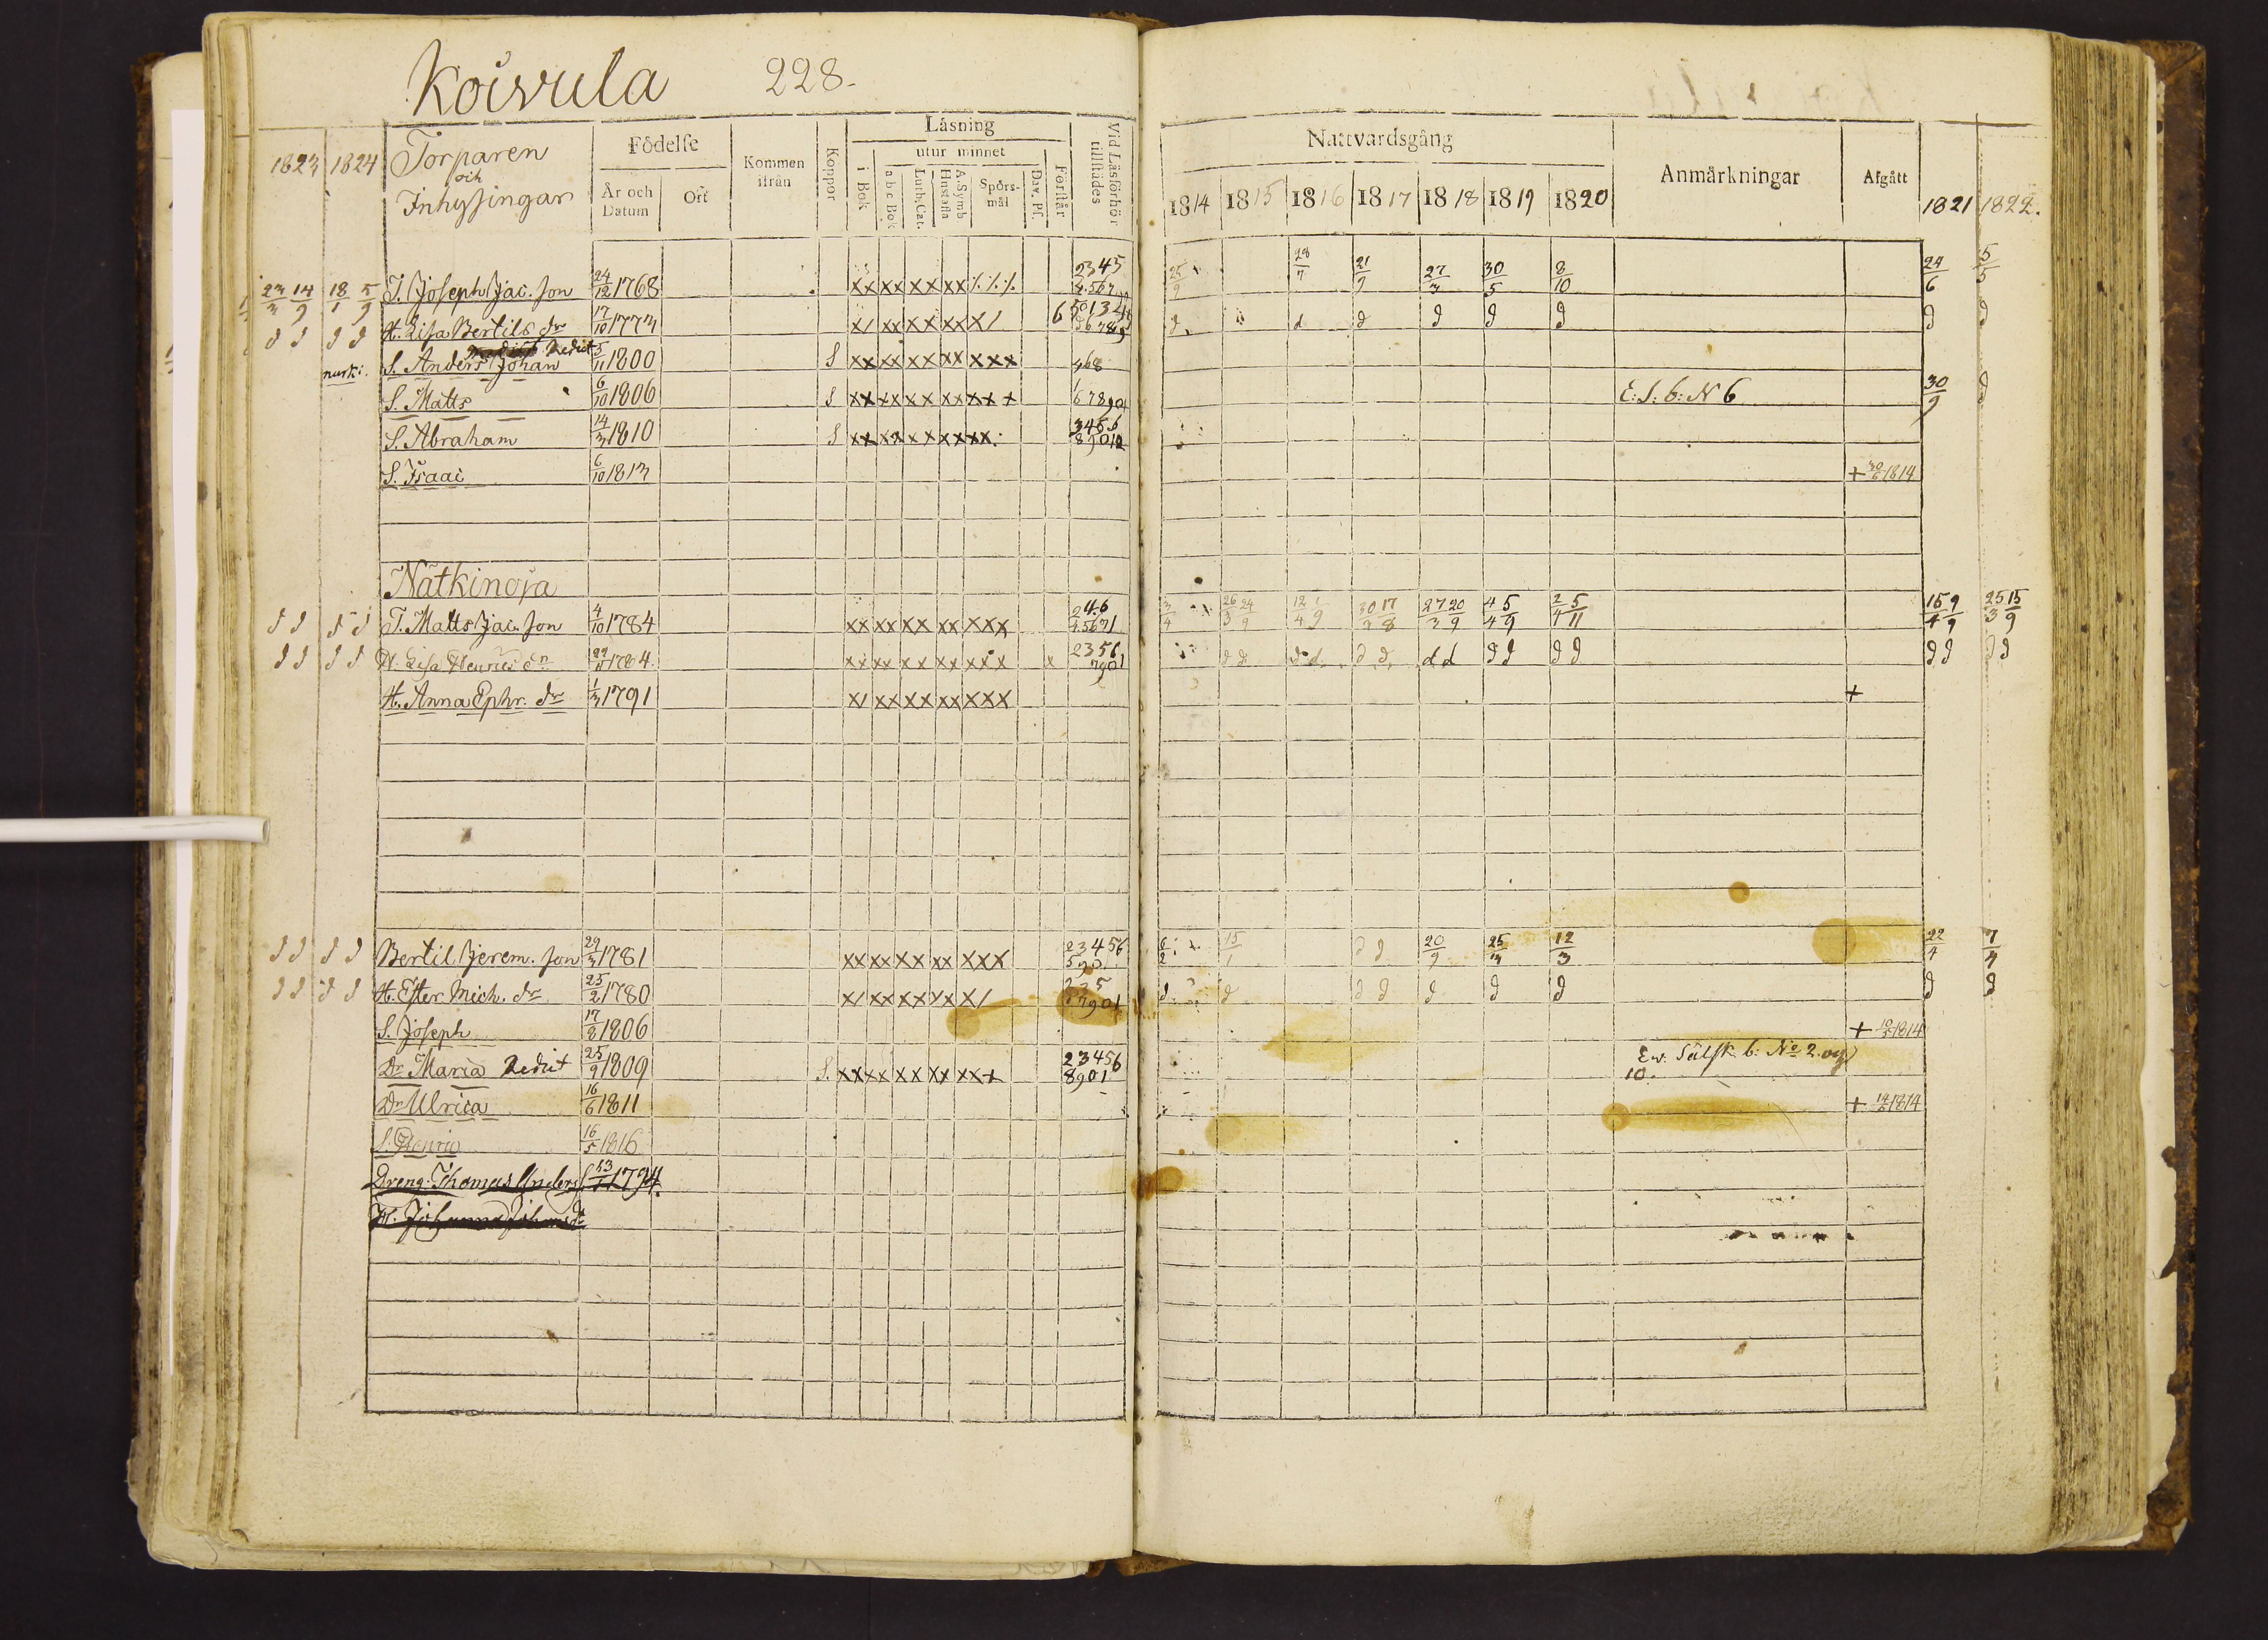 Koivula 228.
1823 1824 Torparen och Inhysingar
Födelse
År och Datum
Ort
Kommen ifrån
Koppor
Läsning
i Bok
utur minnet
a b c Bok
Luth. Cat.
A. Symb Hustafla
Spörs-mål
Dav. Ps.
Förstår
Vid Läsförhör tillstädes
Nattvardsgång
1814 1815 1816 1817 1818 1819 1820
Anmärkningar
Afgått
1821 1822.
23/3 14/9 18/1 5/9 T. Joseph Jac. son 24/12 1768 xx xx xx xx ٪٪ 2345 25/9 28/7 21/9 27/3 30/5 8/10 24/6 5/5
d d d d H. Lisa Bertils dr 17/10 1773 x/ xx xx xx x/ d d d d d d d d
nurk: S. Anders Johan Rediit 5/11 1800 S xx xx xx xx xxx 368
S. Matts 6/10 1806 S xx xx xx xx xxx 678901 E: S: b: N 6 30/9 d
S. Abraham 14/3 1810 S xx xx xx xx xx 3456 89012
S. Isaac 6/10 1813 + 30/6 1814
Nätkinoja
d d d d T. Matts Jac. son 4/10 1784 xx xx xx xx xxx 246 45671 3/4 26/3 24/9 12/4 1/9 30/3 17/8 27/3 20/9 4/4 5/9 2/4 5/11 15/4 9/9 25/3 15/9
d d d d H. Lisa Henrics dr 29/11 1784 xx xx xx xx xxx x 2356 7901 d d d d d d d d d d d d d d d d
H. Anna Ephr. dr 1/3 1791 x/ xx xx xx xxx +
d d d d Bertil Jerem. son 29/3 1781 xx xx xx xx xxx 23456 5901 6/2 15/1 d d 20/9 25/4 12/3 22/4 7/4
d d d d H. Ester Mich. dr 25/2 1780 x/ xx xx xx x/ 235 7901 d d d d d d d d d
S. Joseph 17/8 1806 + 10/5 1814
Dr Maria Rediit 25/9 1809 S. xx xx xx xx xxx 23456 8901 Ew. Sälsk. b: No 2. og 10.
Dr Ulrica 16/6 1811 + 14/5 1814
S. Henric 16/5 1816
Dreng Thomas Anders S. 1794
H. Johanna Johansdr